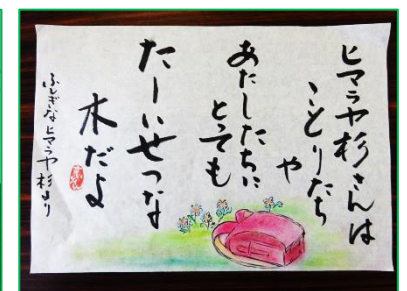 ヒマラヤ杉さんは
ことりたち
や
あたしたちに
とっても
たーいせつな
木だよ
ふしぎなヒマラヤ杉より